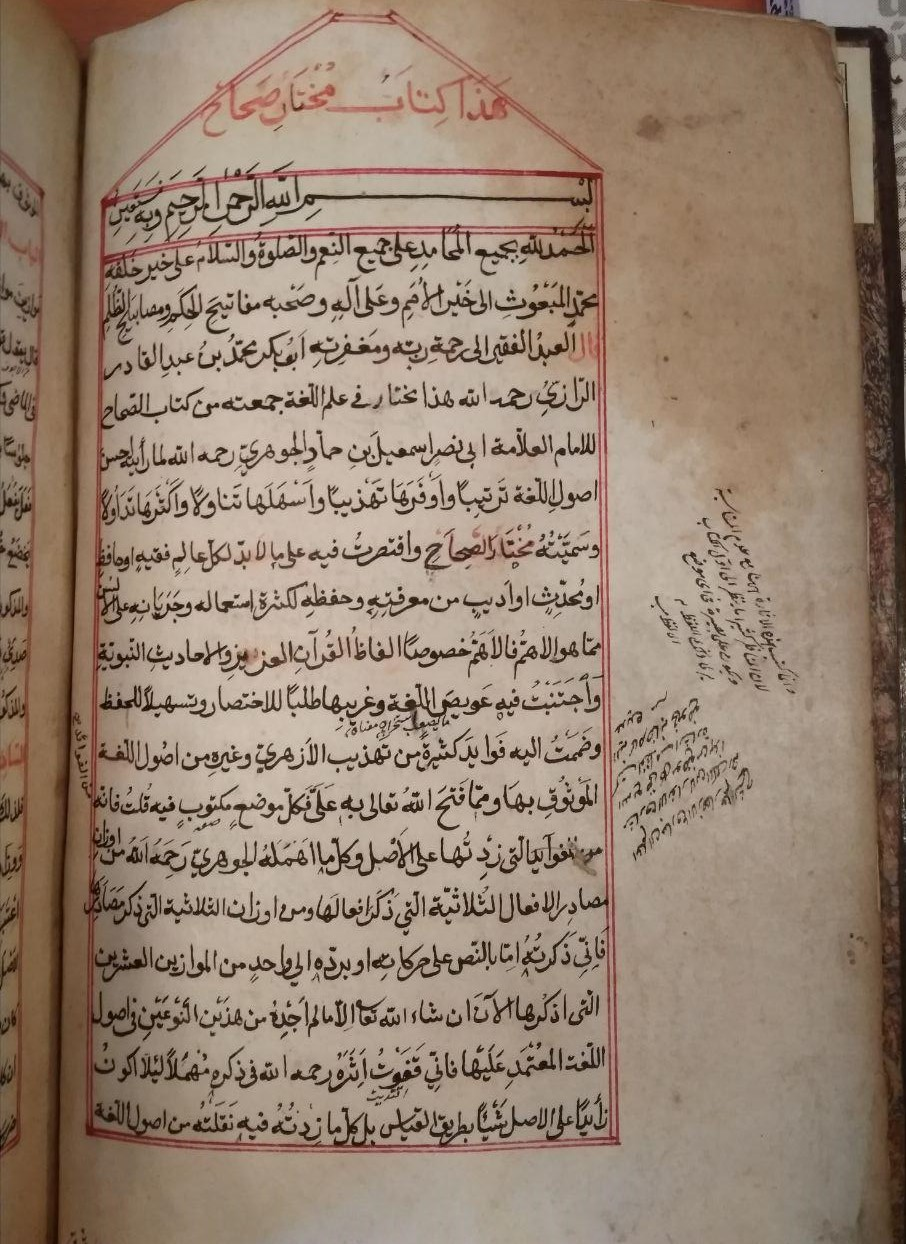 هَذَا كِتَابُ مُخْتَارِ صَحَاح
بسم الله الرحمن الرحيم وبه نستعين
الحَمْدُ للهِ بجميع المحامدِ على جميع النعم والصلوةُ والسلامُ على خير خلقه
محمّدٍ المبْعُوثِ الى خَيْرِ الأُمَمِ وعَلى آلِهِ وصَحْبه مفاتيحِ الحِكَمِ ومصابيح الظُّلَمِ
قال العبدُ الفقير الى رحمةِ ربّهِ ومَغفِرتِهِ ابُو بكر محمّدُ بنُ عبدِ القادر
الرّازيُ رحمه الله هذا مختار في علم اللّغة جمعته من كتاب الصّحاح
للامام العلّامة ابى نصرٍ اسمعيل بنِ حمّادٍ الجوهريّ رحمه الله لما رأيته احسن
اصولِ اللّغة تَرتيبًا وأوفَرَهَا تَهذيبًا وأسْهَلَها تَناوُلًا وأكثَرها تَدَاوُلًا
وسَمَّيْتُهُ مُخْتارَ الصِّحاحِ واقتصرتُ فيه على ما لا بدّ لكل عالِمٍ فقيهٍ او حافظٍ
او مُحدِّثٍ او اديبٍ من معرفتِهِ وحفظِه لكثرة استعماله وجَرَيَانِهِ على الالسن
ممّا هو الاهمّ فالاهَمّ خصوصًا الفاظُ القُرآنِ العزيز والاحاديثِ النّبويّةِ
وَاجتنَبْتُ فيهِ عَويصَ اللّغة وغريبها طلبًا للاختصار وتسهيلًا للحفظ
وضممتُ اليه فَوايدَ كثيرةً من تهذيب الأزهريّ وغيره من اصول اللّغة
الموَثُوقِ بها وممّا فَتَحَ اللهُ تعالى به علَيَّ فكلّ موضعٍ مكتوبٍ فيه قلتُ فانّه
من الفوايد التى زدتُها على الأصْل وكلّ ما اهمَلَهُ الجوهريّ رَحِمَهُ اللهُ من اوزانِ
مصادر الافعال الثُّلاثيّة الّتى ذَكَرَ افعالَها ومن اوزان الثلاثية التى ذكر مصَادرَها
فَانّى ذَكرتُهُ امّا بالنّص على حركاته او بردّه الى واحدٍ من الموازين العشرين
الّتى اذكرها الآن ان شاء الله تعالى الّا ما لم أجدْهُ من هذَيْن النّوعَيْنِ فى اصول
اللّغت المعْتمَدِ عَلَيْها فانّى قَفَوْتُ اَثَرَهُ رحمه الله فى ذكره مُهْمَلًا لِئَلّا اكونُ
زايدًا على الاصل شَيْئًا بطريق القياس بل كلّ ما زدتُهُ فيه نَقَلْتُه من اصول اللّغة